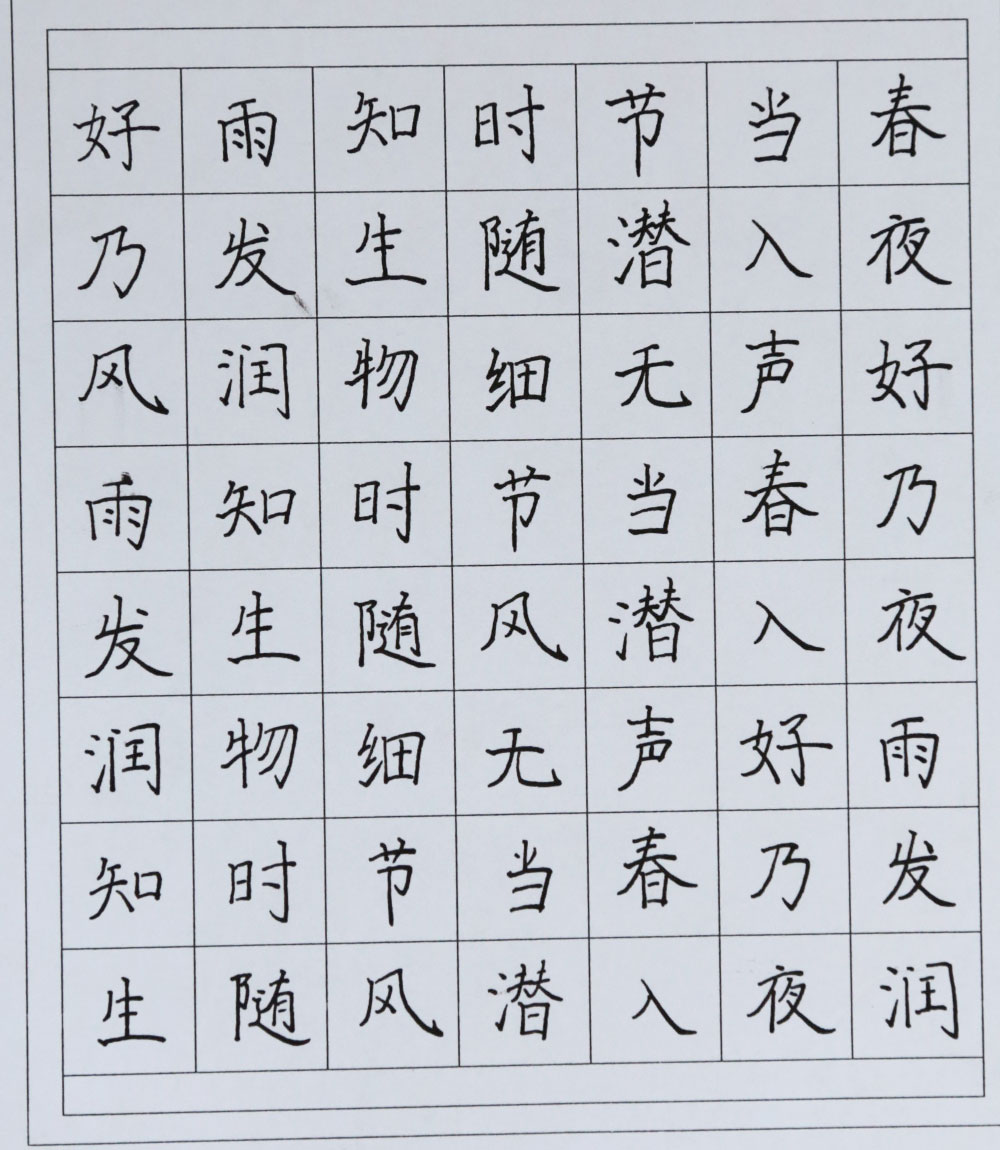 好雨知时节当春
乃发生随潜入夜
风润物细无声好
雨知时节当春乃
发生随风潜入夜
润物细无声好雨
知时节当春乃发
生随风潜入夜润